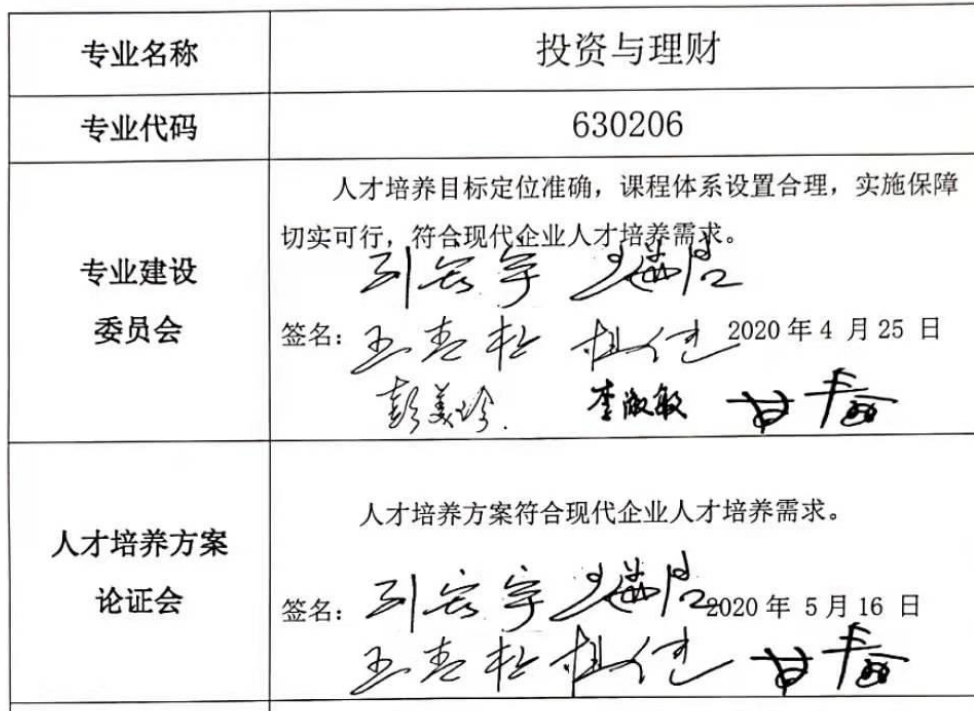 专业名称
投资与理财
专业代码
630206
专业建设
委员会
人才培养目标定位准确，课程体系设置合理，实施保障
切实可行，符合现代企业人才培养需求。
签名：
2020年4月25日
彭美玲
李淑敏
人才培养方案
论证会
人才培养方案符合现代企业人才培养需求。
签名：
2020年5月16日